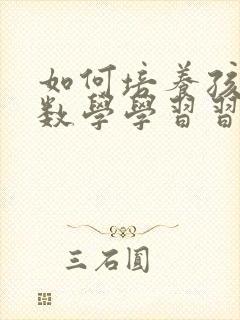 如何培养孩
数學學習習
三石圓